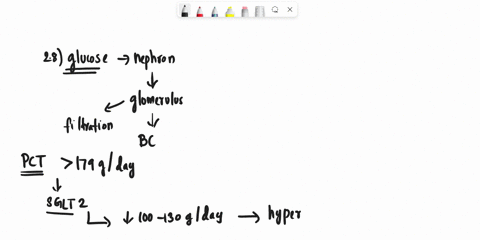 28) glucose → nephron
↓
glomerulus
filtration ↓
BC
PCT > 179 g/day
↓
SGLT2
↓ 100-130 g/day → hyper